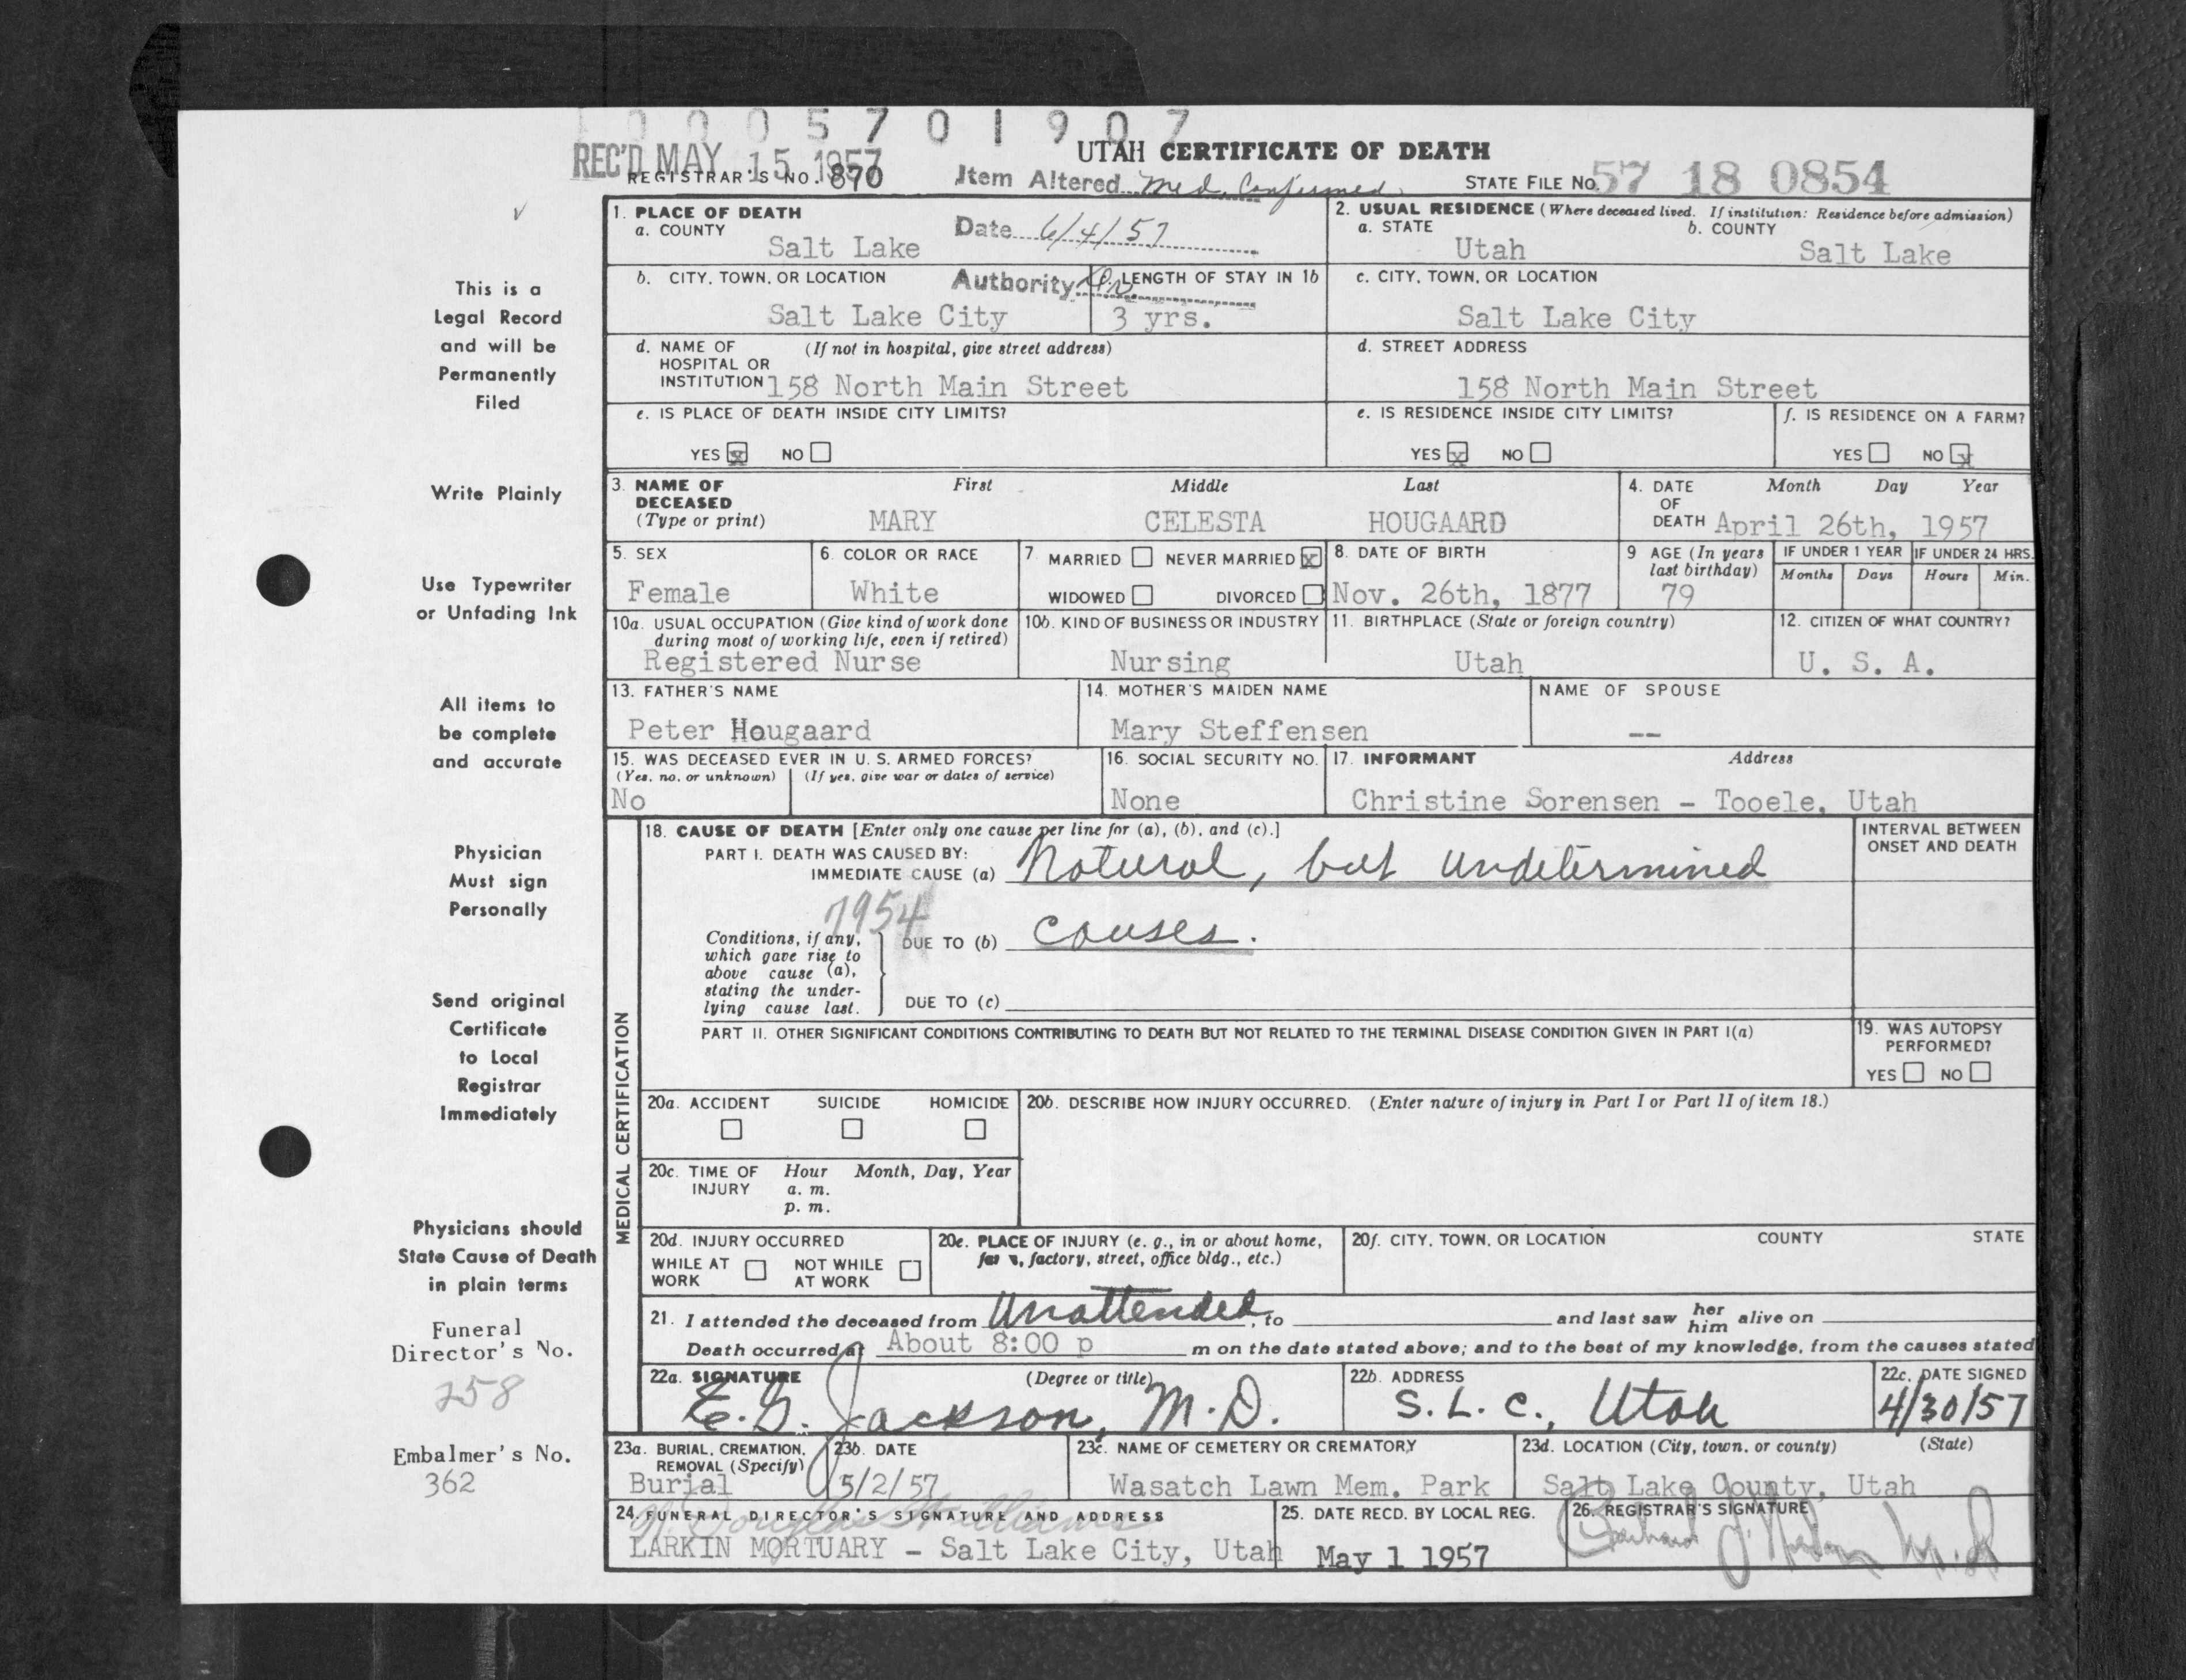 0 0 0 5 7 0 1 9 0 7
REC'D MAY 15 1957
UTAH CERTIFICATE OF DEATH
REGISTRAR'S NO. 870 Item Altered Med. Confirmed STATE FILE No. 57 18 0854
1. PLACE OF DEATH
a. COUNTY
Salt Lake
Date 6/4/57
2. USUAL RESIDENCE (Where deceased lived. If institution: Residence before admission)
a. STATE b. COUNTY
Utah Salt Lake
b. CITY, TOWN, OR LOCATION
Salt Lake City
Authority
c. LENGTH OF STAY IN 1b
3 yrs.
c. CITY, TOWN, OR LOCATION
Salt Lake City
d. NAME OF (If not in hospital, give street address)
HOSPITAL OR
INSTITUTION 158 North Main Street
d. STREET ADDRESS
158 North Main Street
e. IS PLACE OF DEATH INSIDE CITY LIMITS?
YES x NO
e. IS RESIDENCE INSIDE CITY LIMITS?
YES x NO
f. IS RESIDENCE ON A FARM?
YES NO x
3. NAME OF First Middle Last
DECEASED
(Type or print) MARY CELESTA HOUGAARD
4. DATE Month Day Year
OF
DEATH April 26th, 1957
5. SEX
Female
6. COLOR OR RACE
White
7. MARRIED NEVER MARRIED x
WIDOWED DIVORCED
8. DATE OF BIRTH
Nov. 26th, 1877
9 AGE (In years
last birthday)
79
IF UNDER 1 YEAR
Months Days
IF UNDER 24 HRS.
Hours Min.
10a. USUAL OCCUPATION (Give kind of work done
during most of working life, even if retired)
Registered Nurse
10b. KIND OF BUSINESS OR INDUSTRY
Nursing
11. BIRTHPLACE (State or foreign country)
Utah
12. CITIZEN OF WHAT COUNTRY?
U. S. A.
13. FATHER'S NAME
Peter Hougaard
14. MOTHER'S MAIDEN NAME
Mary Steffensen
NAME OF SPOUSE
--
15. WAS DECEASED EVER IN U. S. ARMED FORCES?
(Yes, no, or unknown) (If yes, give war or dates of service)
No
16. SOCIAL SECURITY NO.
None
17. INFORMANT Address
Christine Sorensen - Tooele, Utah
MEDICAL CERTIFICATION
18. CAUSE OF DEATH [Enter only one cause per line for (a), (b), and (c).]
PART I. DEATH WAS CAUSED BY:
IMMEDIATE CAUSE (a) Natural, but undetermined
7954
Conditions, if any,
which gave rise to
above cause (a),
stating the under-
lying cause last.
DUE TO (b) causes.
DUE TO (c)
INTERVAL BETWEEN
ONSET AND DEATH
PART II. OTHER SIGNIFICANT CONDITIONS CONTRIBUTING TO DEATH BUT NOT RELATED TO THE TERMINAL DISEASE CONDITION GIVEN IN PART I(a)
19. WAS AUTOPSY
PERFORMED?
YES NO
20a. ACCIDENT SUICIDE HOMICIDE
20b. DESCRIBE HOW INJURY OCCURRED. (Enter nature of injury in Part I or Part II of item 18.)
20c. TIME OF Hour Month, Day, Year
INJURY a. m.
p. m.
20d. INJURY OCCURRED
WHILE AT NOT WHILE
WORK AT WORK
20e. PLACE OF INJURY (e. g., in or about home,
farm, factory, street, office bldg., etc.)
20f. CITY, TOWN, OR LOCATION COUNTY STATE
21. I attended the deceased from Unattended, to and last saw her him alive on
Death occurred at About 8:00 p m on the date stated above; and to the best of my knowledge, from the causes stated
22a. SIGNATURE (Degree or title)
E. G. Jackson, M.D.
22b. ADDRESS
S. L. C., Utah
22c. DATE SIGNED
4/30/57
23a. BURIAL, CREMATION,
REMOVAL (Specify)
Burial
23b. DATE
5/2/57
23c. NAME OF CEMETERY OR CREMATORY
Wasatch Lawn Mem. Park
23d. LOCATION (City, town, or county) (State)
Salt Lake County, Utah
24. FUNERAL DIRECTOR'S SIGNATURE AND ADDRESS
Douglas Williams
LARKIN MORTUARY - Salt Lake City, Utah
25. DATE RECD. BY LOCAL REG.
May 1 1957
26. REGISTRAR'S SIGNATURE
This is a
Legal Record
and will be
Permanently
Filed
Write Plainly
Use Typewriter
or Unfading Ink
All items to
be complete
and accurate
Physician
Must sign
Personally
Send original
Certificate
to Local
Registrar
Immediately
Physicians should
State Cause of Death
in plain terms
Funeral
Director's No.
258
Embalmer's No.
362